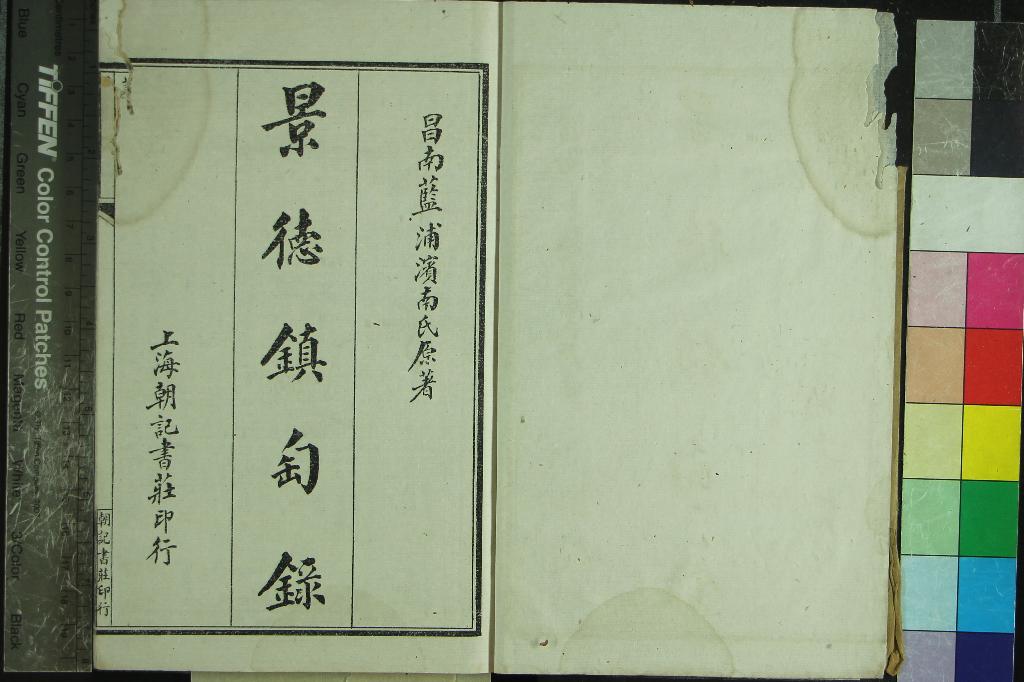 昌南藍浦濱南氏原著
景德鎮匋錄
上海朝記書莊印行
朝記書莊印行
TIFFEN Color Control Patches
Blue Cyan Green Yellow Red Magenta White 3-Color Black